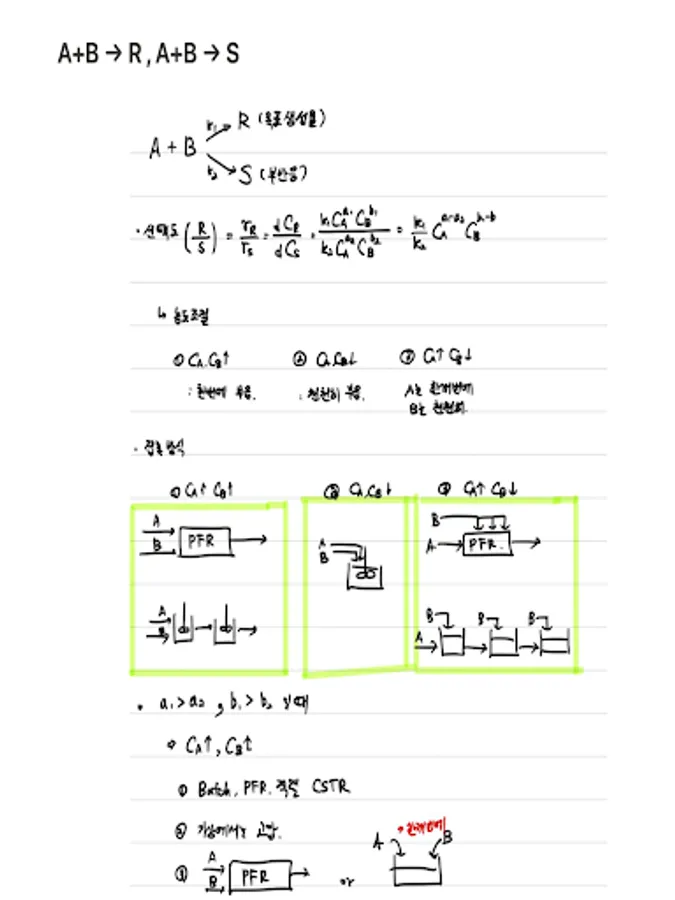 A+B → R , A+B → S
A + B
k₁ → R (목표생성물)
k₂ → S (부반응)
· 선택도 (R/S) = r_R/r_S = dC_R/dC_S = k₁C_A^a₁ C_B^b₁ / k₂C_A^a₂ C_B^b₂ = k₁/k₂ C_A^a₁-a₂ C_B^b₁-b
↳ 농도조절
① C_A, C_B↑ ② C_A, C_B↓ ③ C_A↑ C_B↓
: 한번에 투입. : 천천히 투입. A는 한꺼번에
B는 천천히.
· 접촉방식
① C_A↑ C_B↑ ② C_A, C_B↓ ③ C_A↑ C_B↓
A
B PFR
A
B
B
A → PFR.
A
B
A B B B
• a₁>a₂ , b₁>b₂ 일때
C_A↑, C_B↑
① Batch, PFR, 직렬 CSTR
② 기상에서는 고압.
① A
B PFR or A 한꺼번에 B